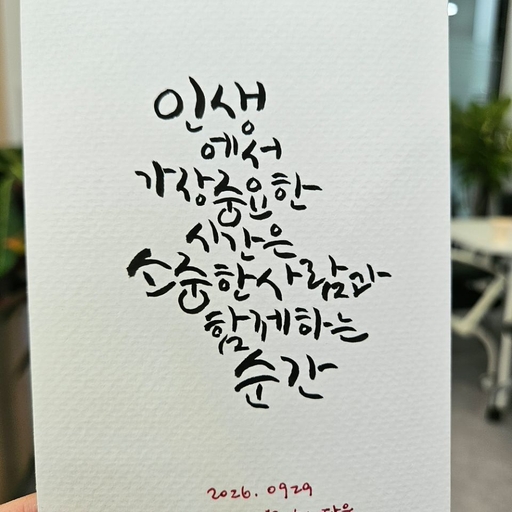 인생
에서
가장중요한
시간은
소중한사람과
함께하는
순간
2026. 0929